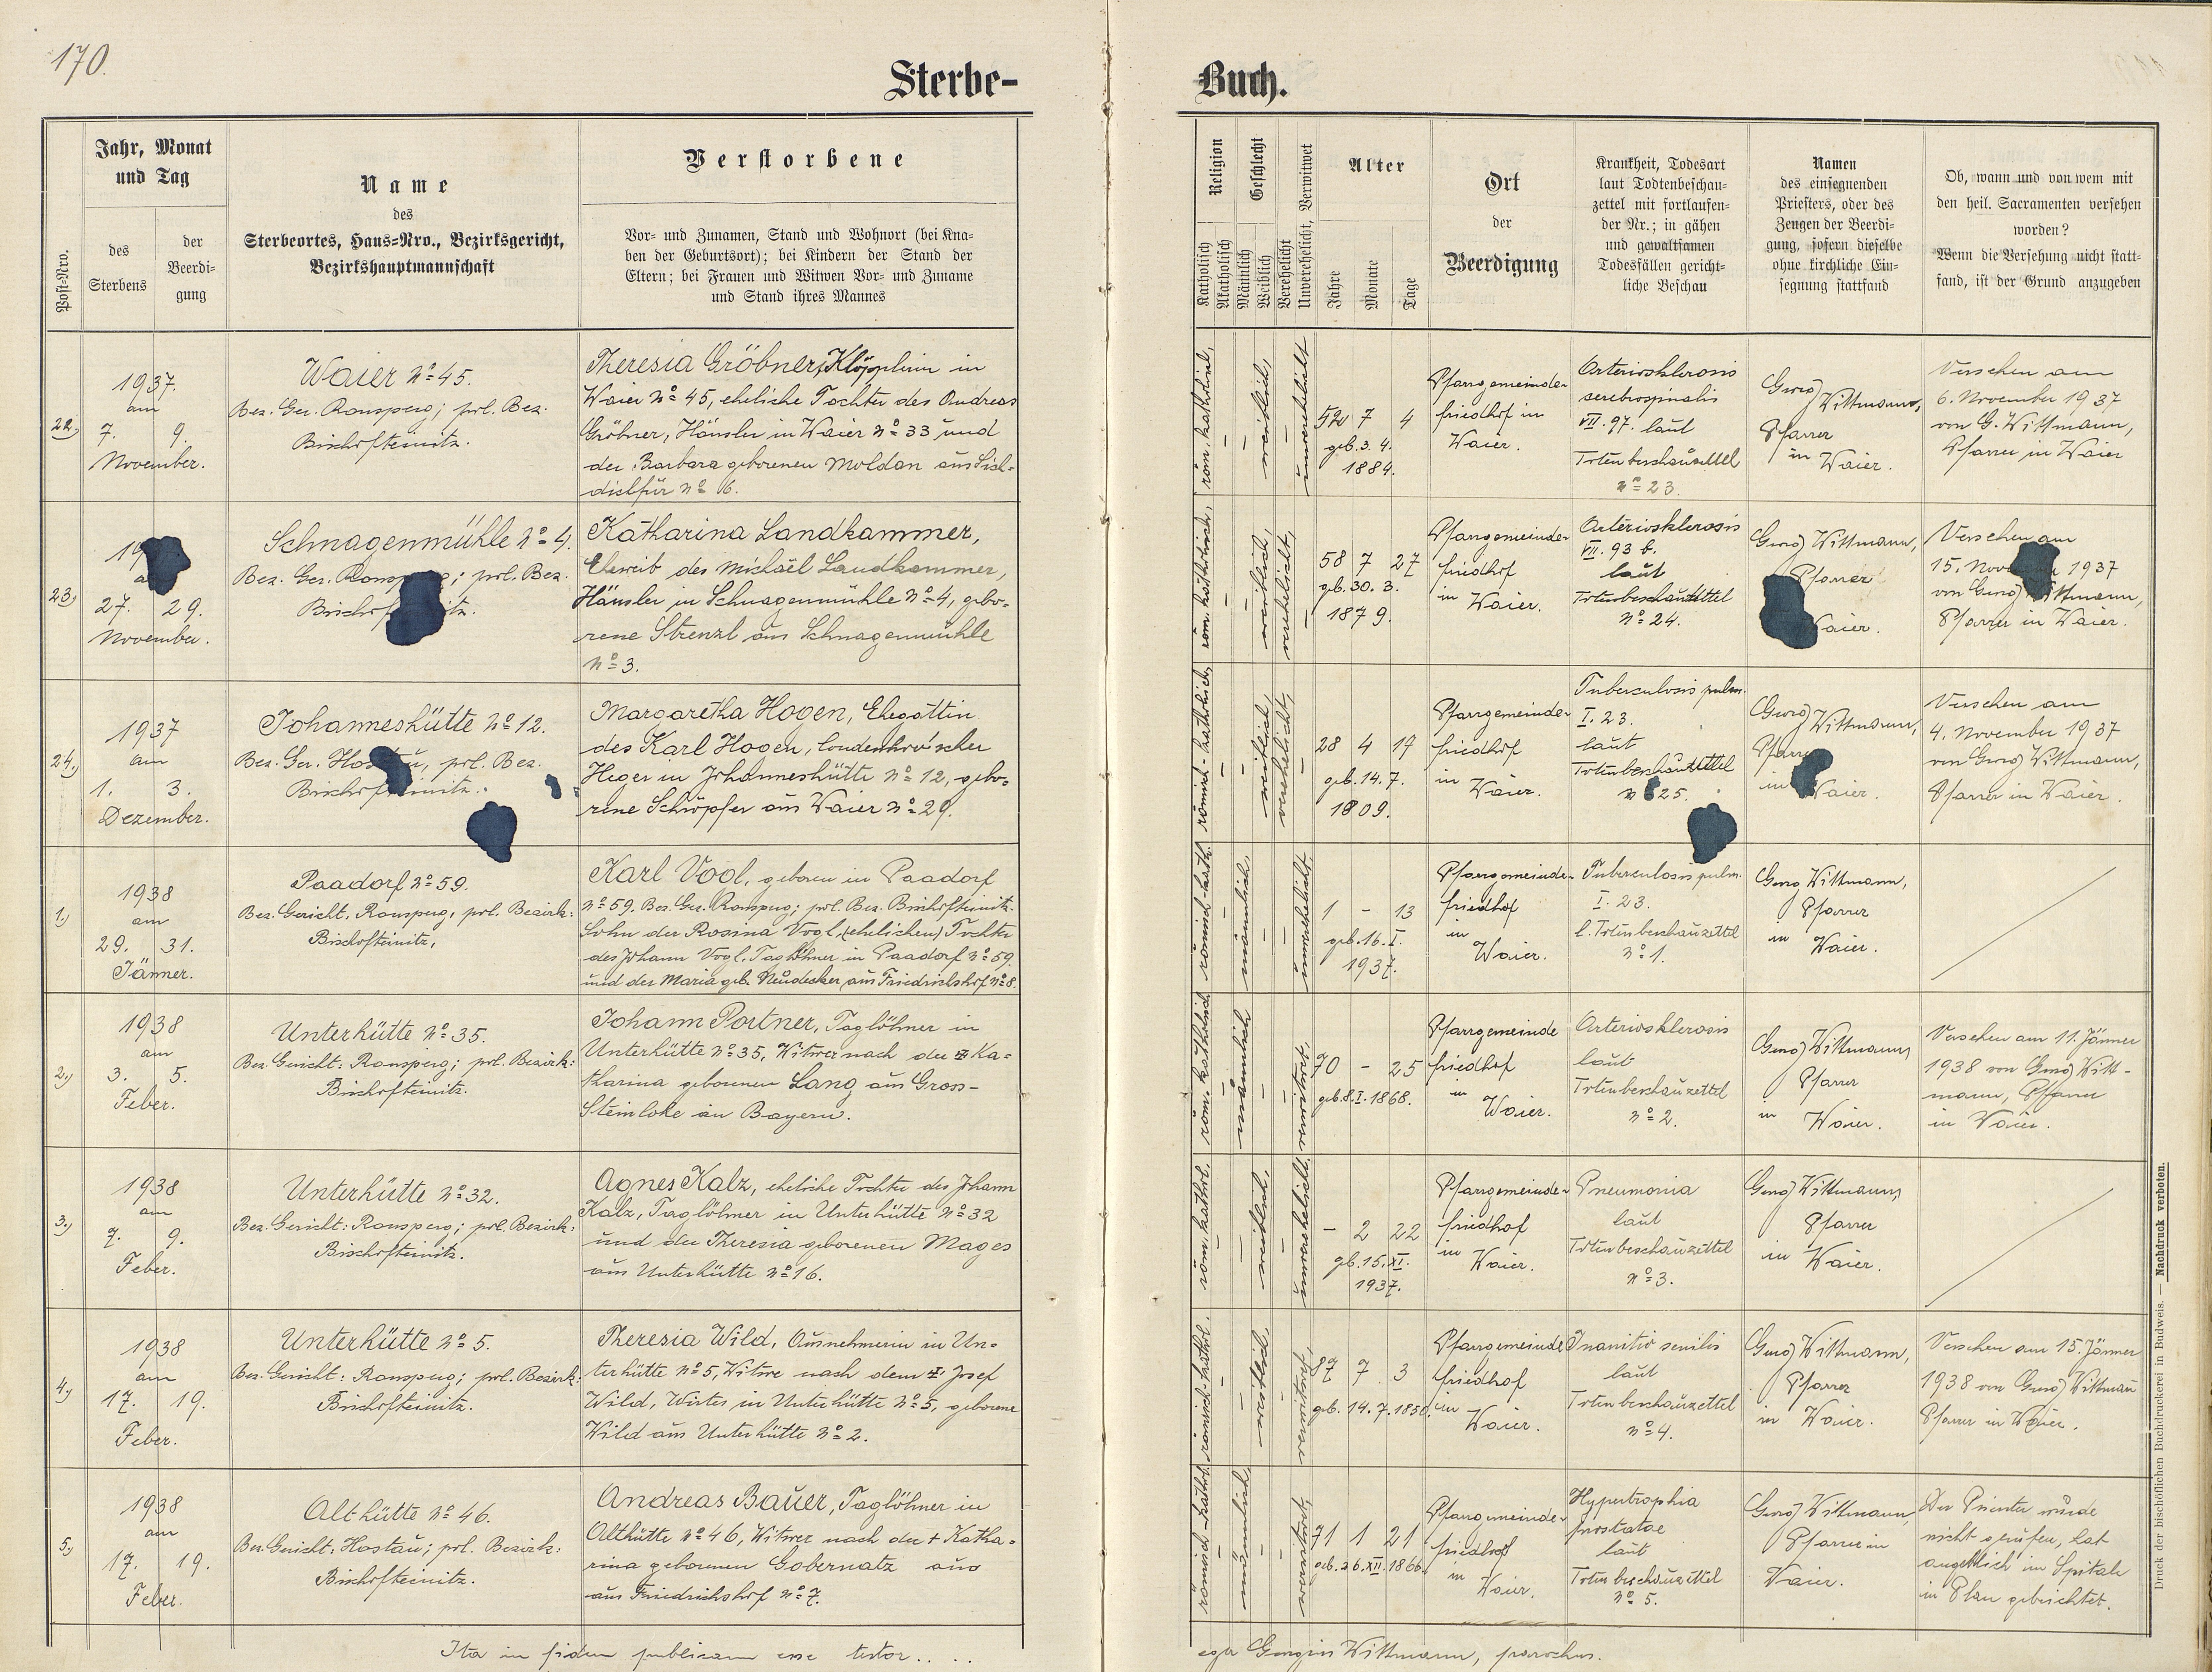 170.
Sterbe-
Buch.
Post-Nro.
Jahr, Monat
und Tag
des
Sterbens
der
Beerdi-
gung
Name
des
Sterbeortes, Haus-Nro., Bezirksgericht,
Bezirkshauptmannschaft
Verstorbene
Vor- und Zunamen, Stand und Wohnort (bei Kna-
ben der Geburtsort); bei Kindern der Stand der
Eltern; bei Frauen und Witwen Vor- und Zuname
und Stand ihres Mannes
Religion
Katholisch
Akatholisch
Geschlecht
Männlich
Weiblich
Verehelicht
Unverehelicht, Verwitwet
Alter
Jahre
Monate
Tage
Ort
der
Beerdigung
Krankheit, Todesart
laut Todtenbeschau-
zettel mit fortlaufen-
der Nr.; in gähen
und gewaltsamen
Todesfällen gericht-
liche Beschau
Namen
des einsegnenden
Priesters, oder des
Zeugen der Beerdi-
gung, sofern dieselbe
ohne kirchliche Ein-
segnung stattfand
Ob, wann und von wem mit
den heil. Sacramenten versehen
worden?
Wenn die Versehung nicht statt-
fand, ist der Grund anzugeben
22.)
1937.
am
7. 9.
November.
Waier No 45.
Bez. Ger. Ronsperg; pol. Bez.
Bischofteinitz.
Theresia Gröbner, Klöpplerin in
Waier No 45, eheliche Tochter des Andreas
Gröbner, Häusler in Waier No 33 und
der Barbara geborenen Moldan aus
No 16.
röm. katholisch,
weiblich,
unverehelicht
52 7 4
geb. 3. 4.
1884.
Pfarrgemeinde-
friedhof in
Waier.
Arteriosklerosis
cerebrospinalis
VII. 97. laut
Totenbeschauzettel
No 23.
Georg
Wittmann,
Pfarrer
in Waier.
Versehen am
6. November 1937
von G. Wittmann,
Pfarrer in Waier
23.)
19
27. 29.
November.
Schnagenmühle No 4.
Bez. Ger. ; pol. Bez.
Katharina Landkammer,
Eheweib des Michael Landkammer,
Häusler in Schnagenmühle No 4, gebo-
rene Strenzl aus Schnagenmühle
No 3.
röm. katholisch,
weiblich,
verehelicht,
58 7 27
geb. 30. 3.
1879.
Pfarrgemeinde-
friedhof
in Waier.
Arteriosklerosis
VII. 93 b.
laut
Totenbeschauzettel
No 24.
Georg Wittmann,
Pfarrer
Waier.
Versehen am
15. November 1937
von Georg Wittmann,
Pfarrer in Waier.
24.)
1937
am
1. 3.
Dezember.
Johanneshütte No 12.
Bez. Ger. Hostau, pol. Bez.
Bischofteinitz.
Margaretha Hogen, Ehegattin
des Karl Hogen,
Heger in Johanneshütte No 12, gebo-
rene Schröpfer aus Waier No 29.
römisch-katholisch,
weiblich,
verehelicht,
28 4 17
geb. 14. 7.
1809.
Pfarrgemeinde-
friedhof
in Waier.
Tuberculosis pulm.
I. 23.
laut
Totenbeschauzettel
No 25.
Georg Wittmann,
Pfarrer
in Waier.
Versehen am
4. November 1937
von Georg Wittmann,
Pfarrer in Waier.
1.)
1938
am
29. 31.
Jänner.
Paadorf No 59.
Bez. Gericht, Ronsperg, pol. Bezirk:
Bischofteinitz,
Karl Vogl, geboren in Paadorf
No 59. Bez. Ger. Ronsperg; pol. Bez. Bischofteinitz.
Sohn der Rosina Vogl, (ehelichen) Tochter
des Johann Vogl, Taglöhner in Paadorf No 59
und der Maria geb. Neudecker, aus Friedrichshof No 8.
römisch-kath.
männlich,
unverehelicht,
1 - 13
geb. 16. I.
1937.
Pfarrgemeinde-
friedhof
in
Waier.
Tuberculosis pulm.
I. 23.
l. Totenbeschauzettel
No 1.
Georg Wittmann,
Pfarrer
in Waier.
2.)
1938
am
3. 5.
Feber.
Unterhütte No 35.
Bez. Gericht: Ronsperg; pol. Bezirk:
Bischofteinitz.
Johann Portner, Taglöhner in
Unterhütte No 35, Witwer nach der Ka-
tharina geborenen Lang aus Gross-
Steinlohe in Bayern.
röm. katholisch
männlich
verwitwet,
70 - 25
geb. 8. I. 1868.
Pfarrgemeinde
friedhof
in
Waier.
Arteriosklerosis
laut
Totenbeschauzettel
No 2.
Georg Wittmann,
Pfarrer
in Waier.
Versehen am 11. Jänner
1938 von Georg Witt-
mann, Pfarrer
in Waier.
3.)
1938
am
7. 9.
Feber.
Unterhütte No 32.
Bez. Gericht: Ronsperg; pol. Bezirk:
Bischofteinitz.
Agnes Kalz, eheliche Tochter des Johann
Kalz, Taglöhner in Unterhütte No 32
und der Theresia geborenen Mages
aus Unterhütte No 16.
röm. kathol.
weiblich,
unverehelicht.
- 2 22
geb. 15. XI.
1937.
Pfarrgemeinde-
friedhof
in Waier.
Pneumonia
laut
Totenbeschauzettel
No 3.
Georg Wittmann,
Pfarrer
in Waier.
4.)
1938
am
17. 19.
Feber.
Unterhütte No 5.
Bez. Gericht: Ronsperg; pol. Bezirk:
Bischofteinitz.
Theresia Wild, Ausnehmerin in Un-
terhütte No 5, Witwe nach dem Josef
Wild, Wirtes in Unterhütte No 5, geborene
Wild aus Unterhütte No 2.
römisch-kathol.
weiblich,
verwitwet,
87 7 3
geb. 14. 7. 1850.
Pfarrgemeinde
friedhof
in
Waier.
Inanitio senilis
laut
Totenbeschauzettel
No 4.
Georg Wittmann,
Pfarrer
in Waier.
Versehen am 15. Jänner
1938 von Georg Wittmann
Pfarrer in Waier.
5.)
1938
am
17. 19.
Feber.
Althütte No 46.
Bez. Gericht, Hostau; pol. Bezirk:
Bischofteinitz.
Andreas Bauer, Taglöhner in
Althütte No 46, Witwer nach der + Katha-
rina geborenen Gobernatz aus
aus Friedrichshof No 7.
römisch-kathol.
männlich,
verwitwet,
71 1 21
geb. 26. XII. 1866.
Pfarrgemeinde-
friedhof
in
Waier.
Hypertrophia
prostatae
laut
Totenbeschauzettel
No 5.
Georg Wittmann,
Pfarrer in
Waier.
Der Priester wurde
nicht gerufen, hat
angeblich im Spitale
in Plan gebeichtet.
Ita in fidem publicam esse testor....
ego Georgius Wittmann, parochus.
Druck der bischöflichen Buchdruckerei in Budweis. — Nachdruck verboten.